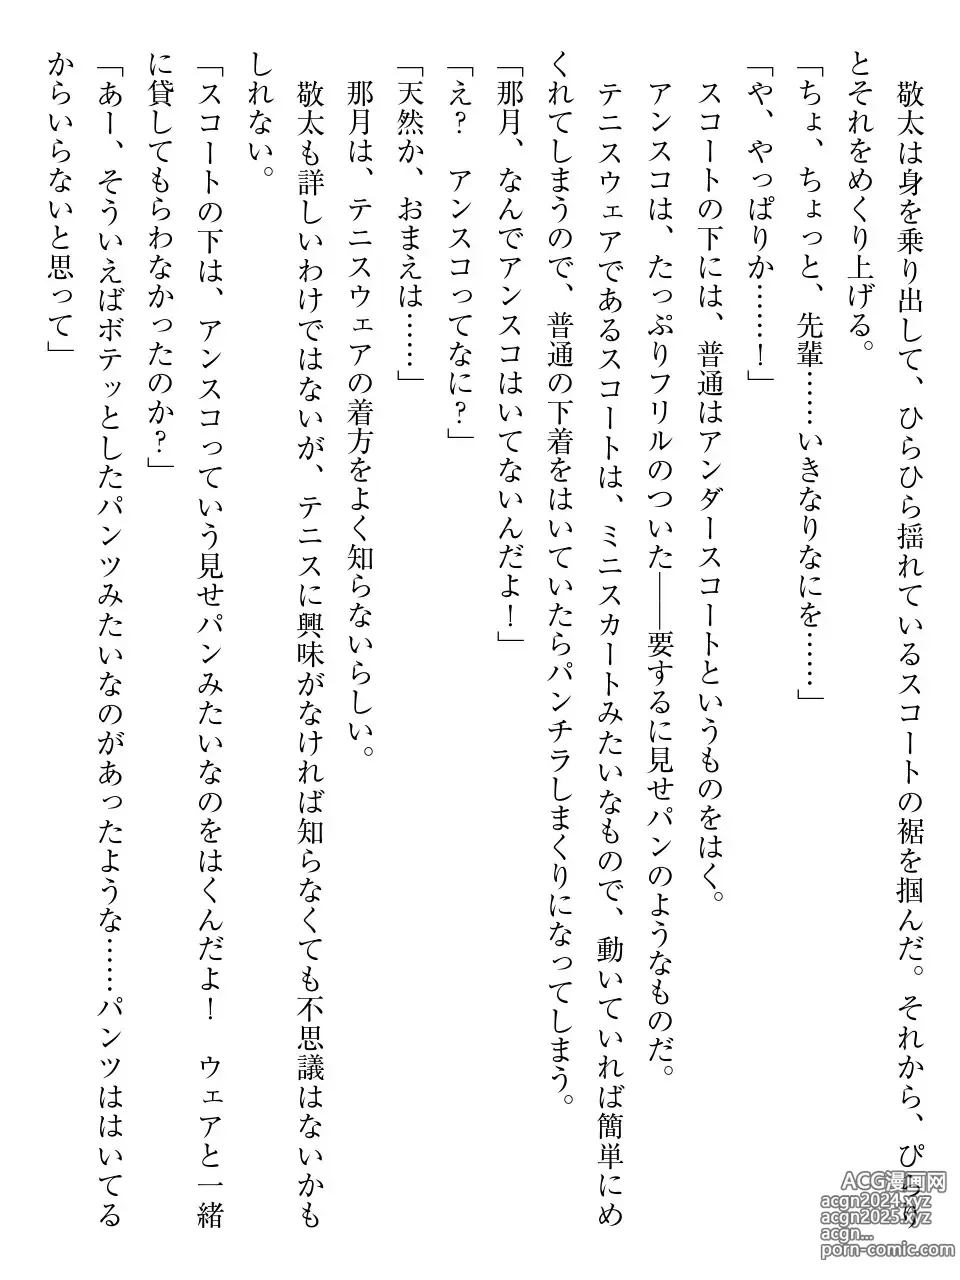 敬太は身を乗り出して、ひらひら揺れているスコートの裾を掴んだ。それから、ぴらり
とそれをめくり上げる。
「ちょ、ちょっと、先輩……いきなりなにを……」
「や、やっぱりか……！」
スコートの下には、普通はアンダースコートというものをはく。
アンスコは、たっぷりフリルのついた――要するに見せパンのようなものだ。
テニスウェアであるスコートは、ミニスカートみたいなもので、動いていれば簡単にめ
くれてしまうので、普通の下着をはいていたらパンチラしまくりになってしまう。
「那月、なんでアンスコはいてないんだよ！」
「え？　アンスコってなに？」
「天然か、おまえは……」
那月は、テニスウェアの着方をよく知らないらしい。
敬太も詳しいわけではないが、テニスに興味がなければ知らなくても不思議はないかも
しれない。
「スコートの下は、アンスコっていう見せパンみたいなのをはくんだよ！　ウェアと一緒
に貸してもらわなかったのか？」
「あー、そういえばボテッとしたパンツみたいなのがあったような……パンツははいてる
からいらないと思って」
ACG漫画网
acgn2024.xyz
acgn2025.xyz
acgn...
porn-comic.com